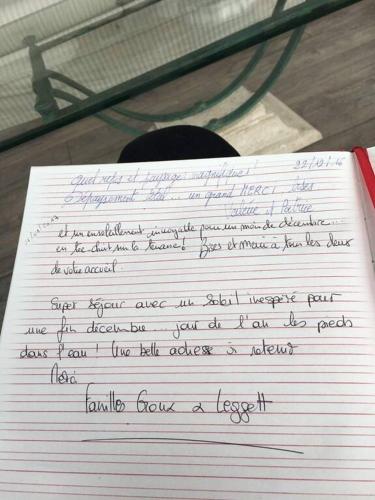 Quel repos et paysages magnifiques! 27/12/16
Dépaysement total... un grand MERCI, bises
Valérie et Patrice
et un ensoleillement incroyable pour un mois de décembre...
en tee-shirt sur la terrasse! Bises et merci à tous les deux
de votre accueil.
Super séjour avec un soleil inespéré pour
une fin décembre... jour de l'an les pieds
dans l'eau! Une belle adresse à retenir
Merci
Familles Goux & Leggett